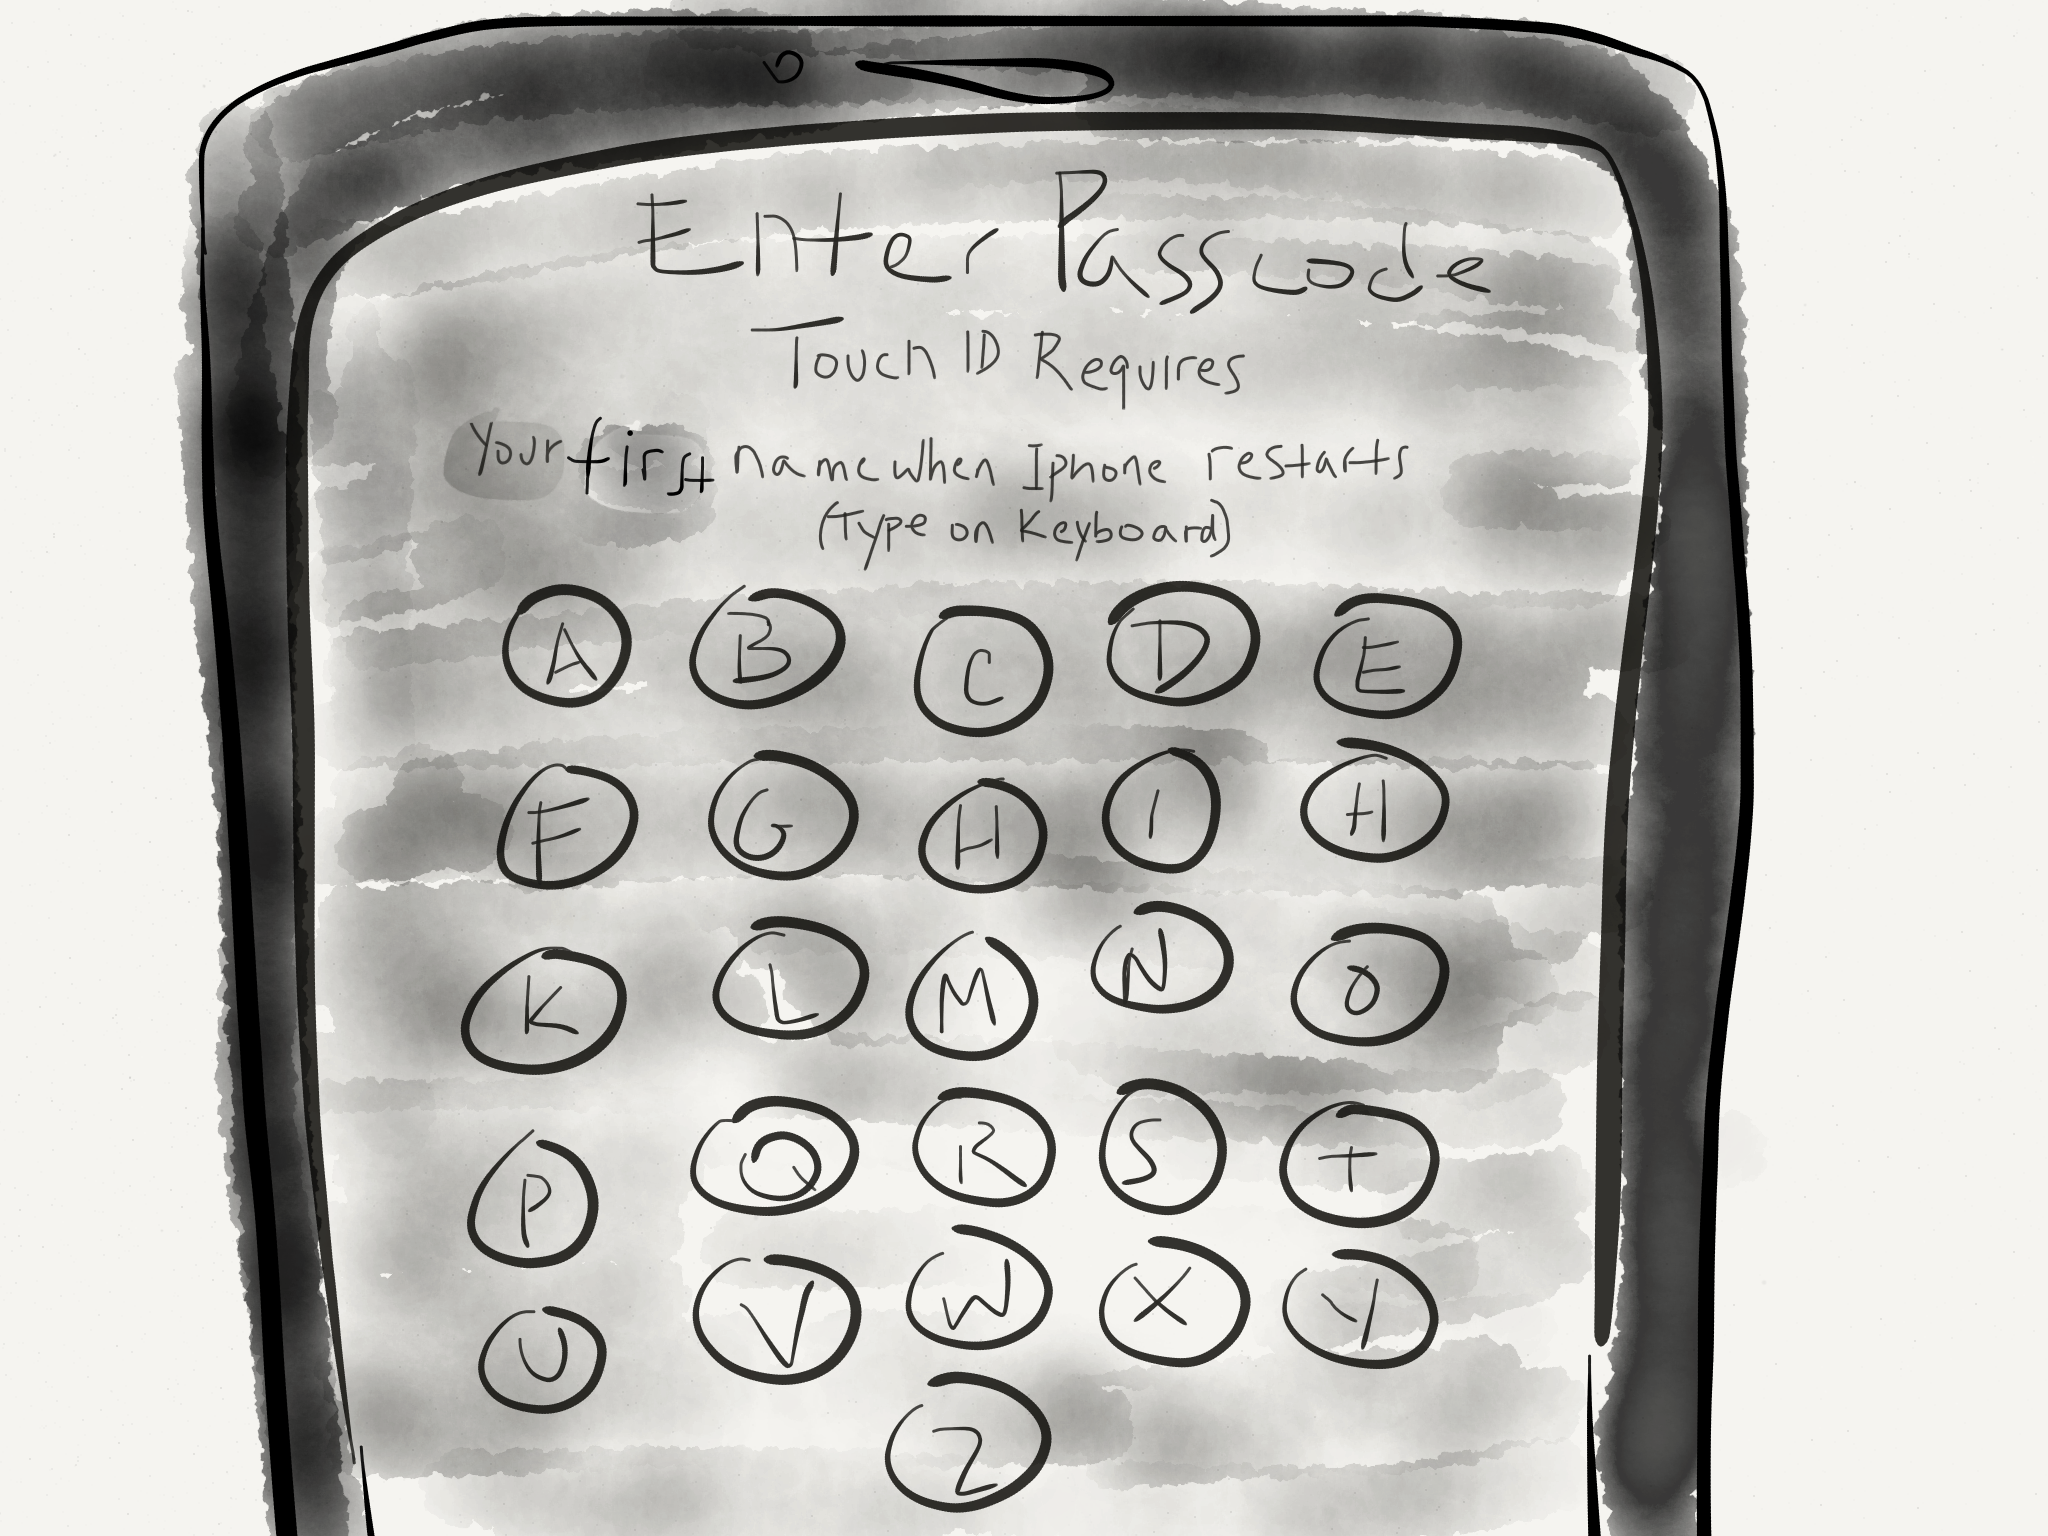 Enter Passcode
Touch ID Requires
Your first name when Iphone restarts
(Type on Keyboard)
A B C D E
F G H I H
K L M N O
P Q R S T
U V W X Y
Z